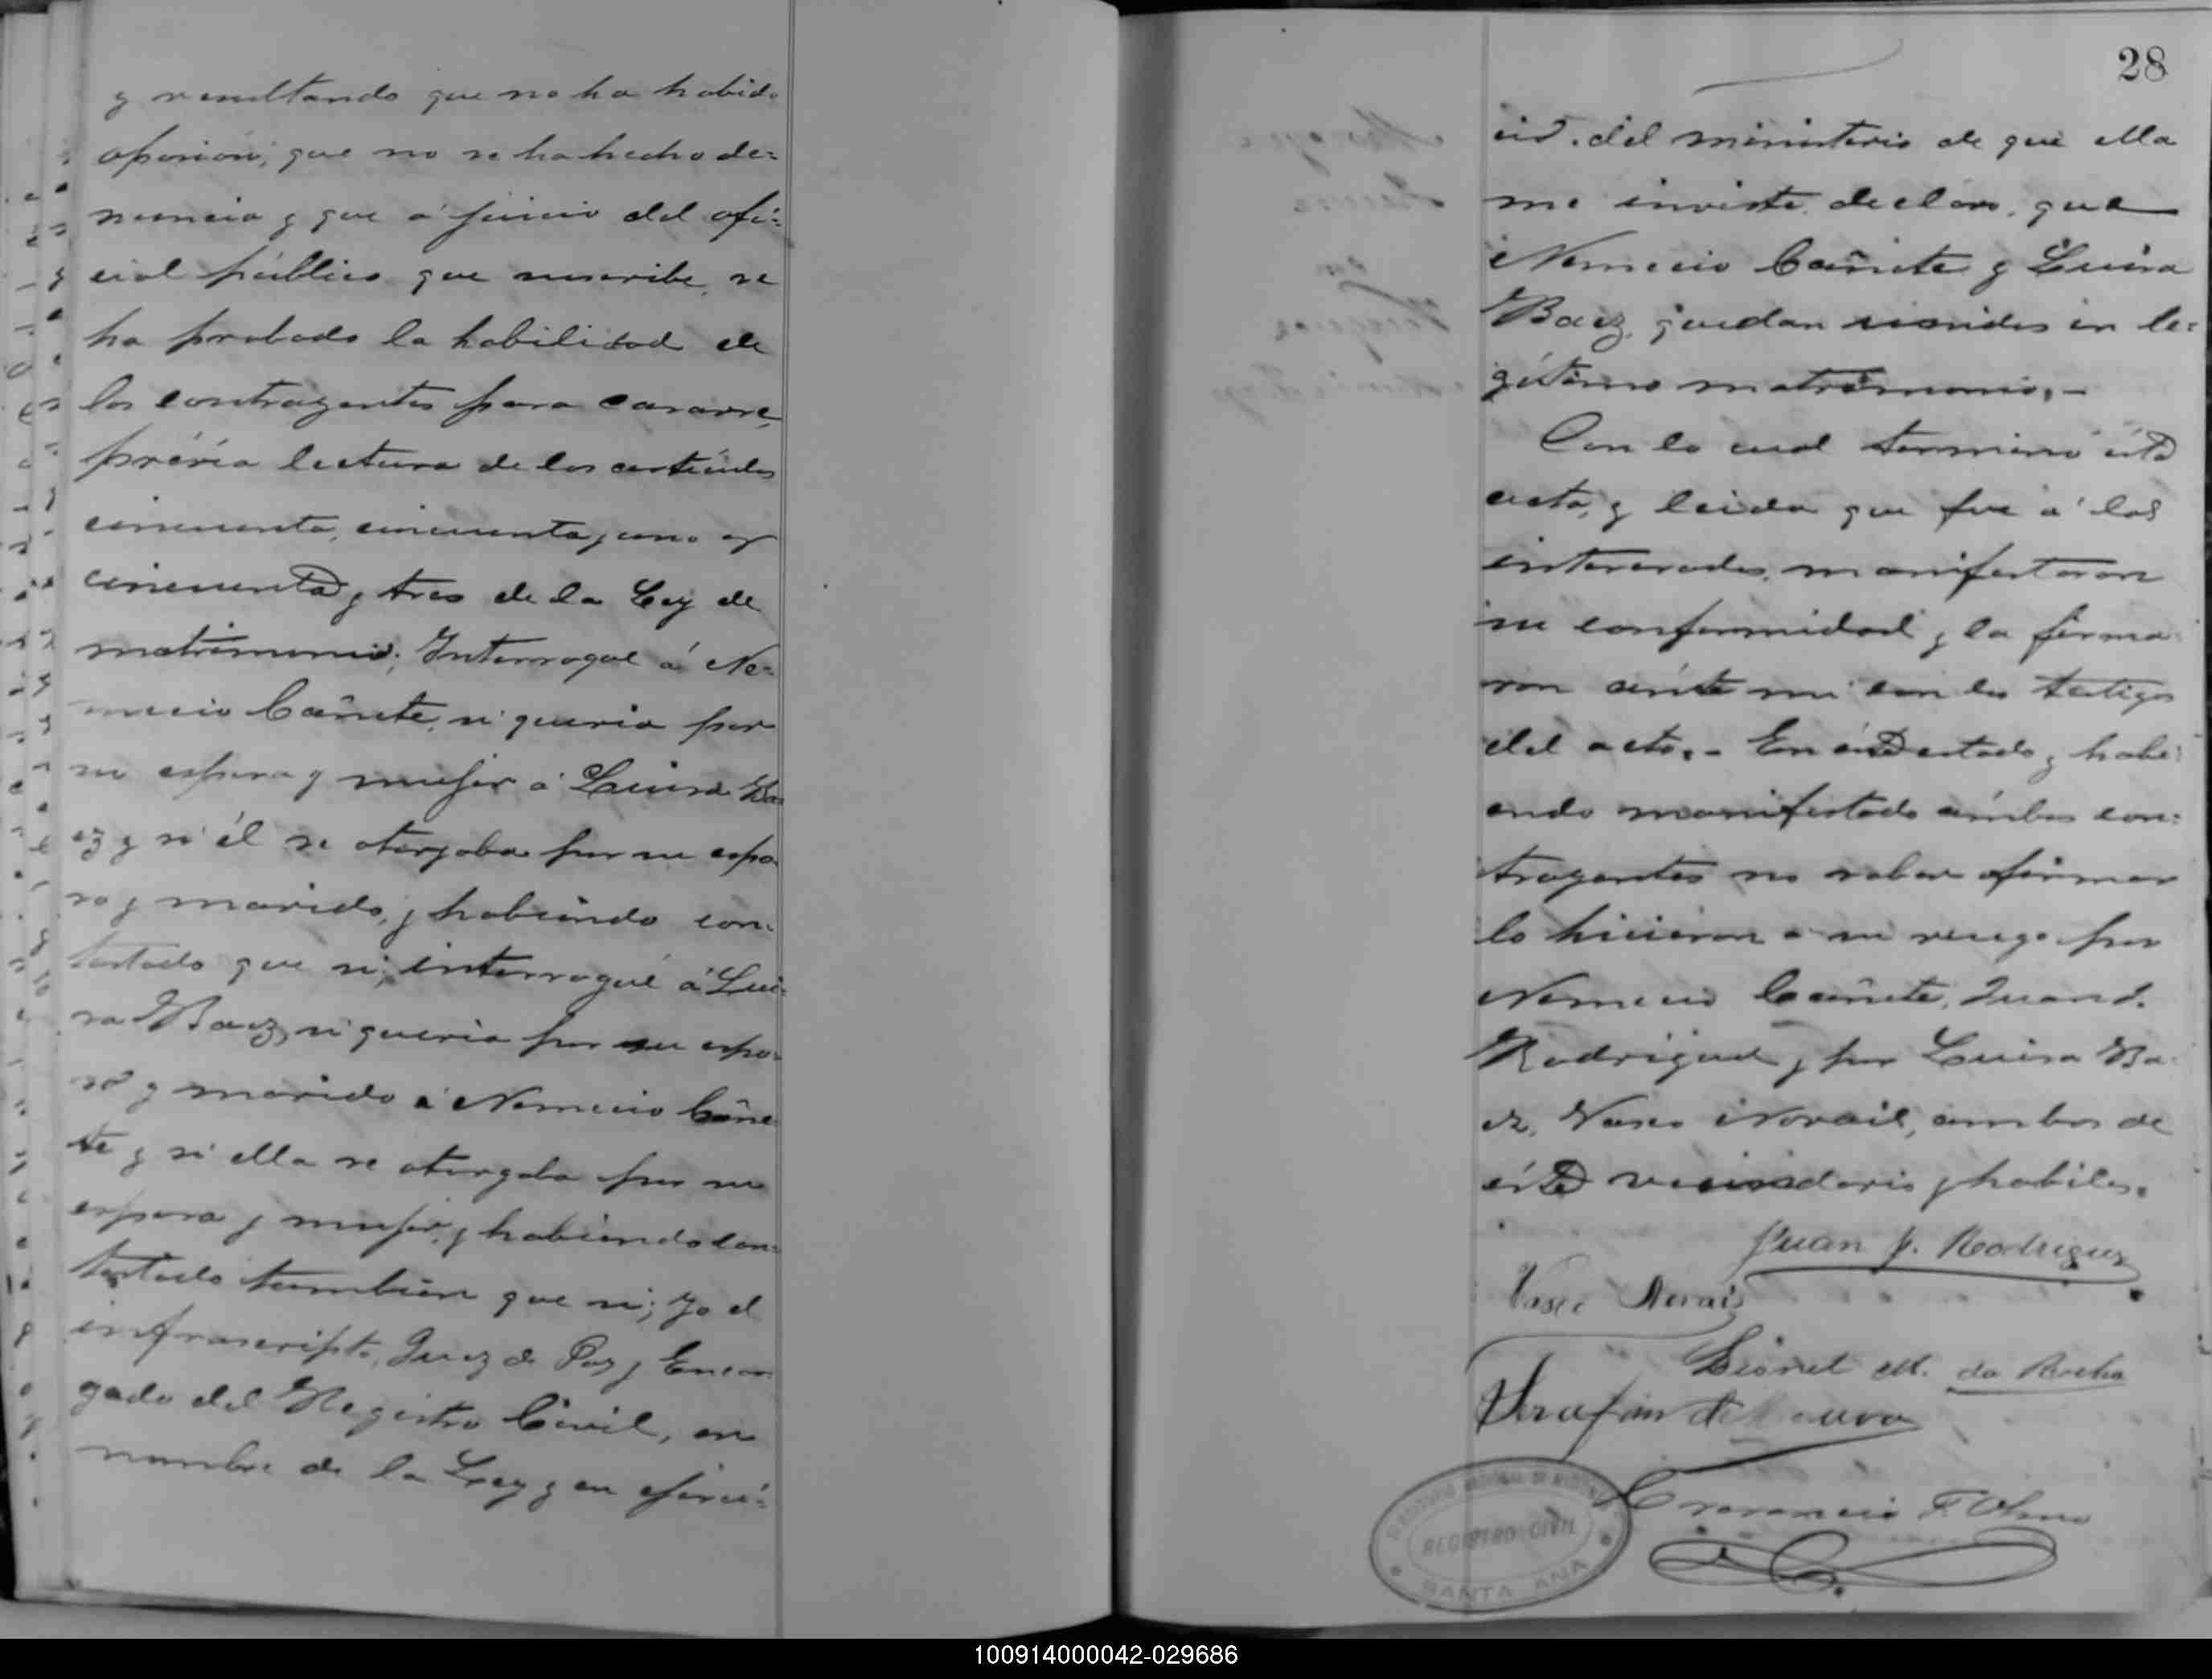 y resultando que no ha habido
oposición; que no se ha hecho de=
nuncia y que á juicio del ofi=
cial público que suscribe, se
ha probado la habilidad de
los contrayentes para casarse,
prévia lectura de los artículos
cincuenta, cincuenta y uno y
cincuenta y tres de la Ley de
matrimonio; Interrogué á Ne=
mecio Cañete, si queria por
su esposa y mujer á Luisa Ba
ez y si él se otorgaba por su espo=
so y marido, y habiendo con=
testado que si; interrogué á Lui=
sa Baez, si queria por su espo=
so y marido á Nemecio Cañe
te y si ella se otorgaba por su
esposa y mujer, y habiendo con=
testado tambien que si; yo el
infrascripto, Juez de Paz y Encar
gado del Registro Civil, en
nombre de la Ley y en ejerci=
28
cio del ministerio de que ella
me inviste declaro, que
Nemecio Cañete y Luisa
Baez, quedan unidos en le=
gítimo matrimonio.-
Con lo cual terminó ésta
acta, y leida que fue á los
interesados, manifestaron
su conformidad y la firma
ron ante mi con los testigos
del acto.- En éste estado y habi=
endo manifestado ámbos con=
trayentes no saber firmar
lo hicieron a su ruego por
Nemecio Cañete, Juan P.
Rodriguez y por Luisa Ba
ez, Vasco Morais, ambos de
éste vecindario y habiles.
Juan P. Rodriguez
Vasco Morais
Leonel M. da Rocha
Serafin de Moura
F. Olmo
REGISTRO CIVIL
SANTA ANA
100914000042-029686